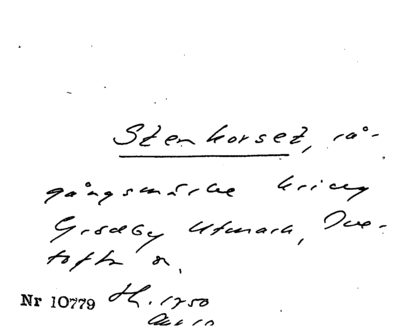 Stenkorset, rå-
gångsmärke kring
Grödby Utmark, Tve-
tofta s.
Nr 10779 Lh. 1750